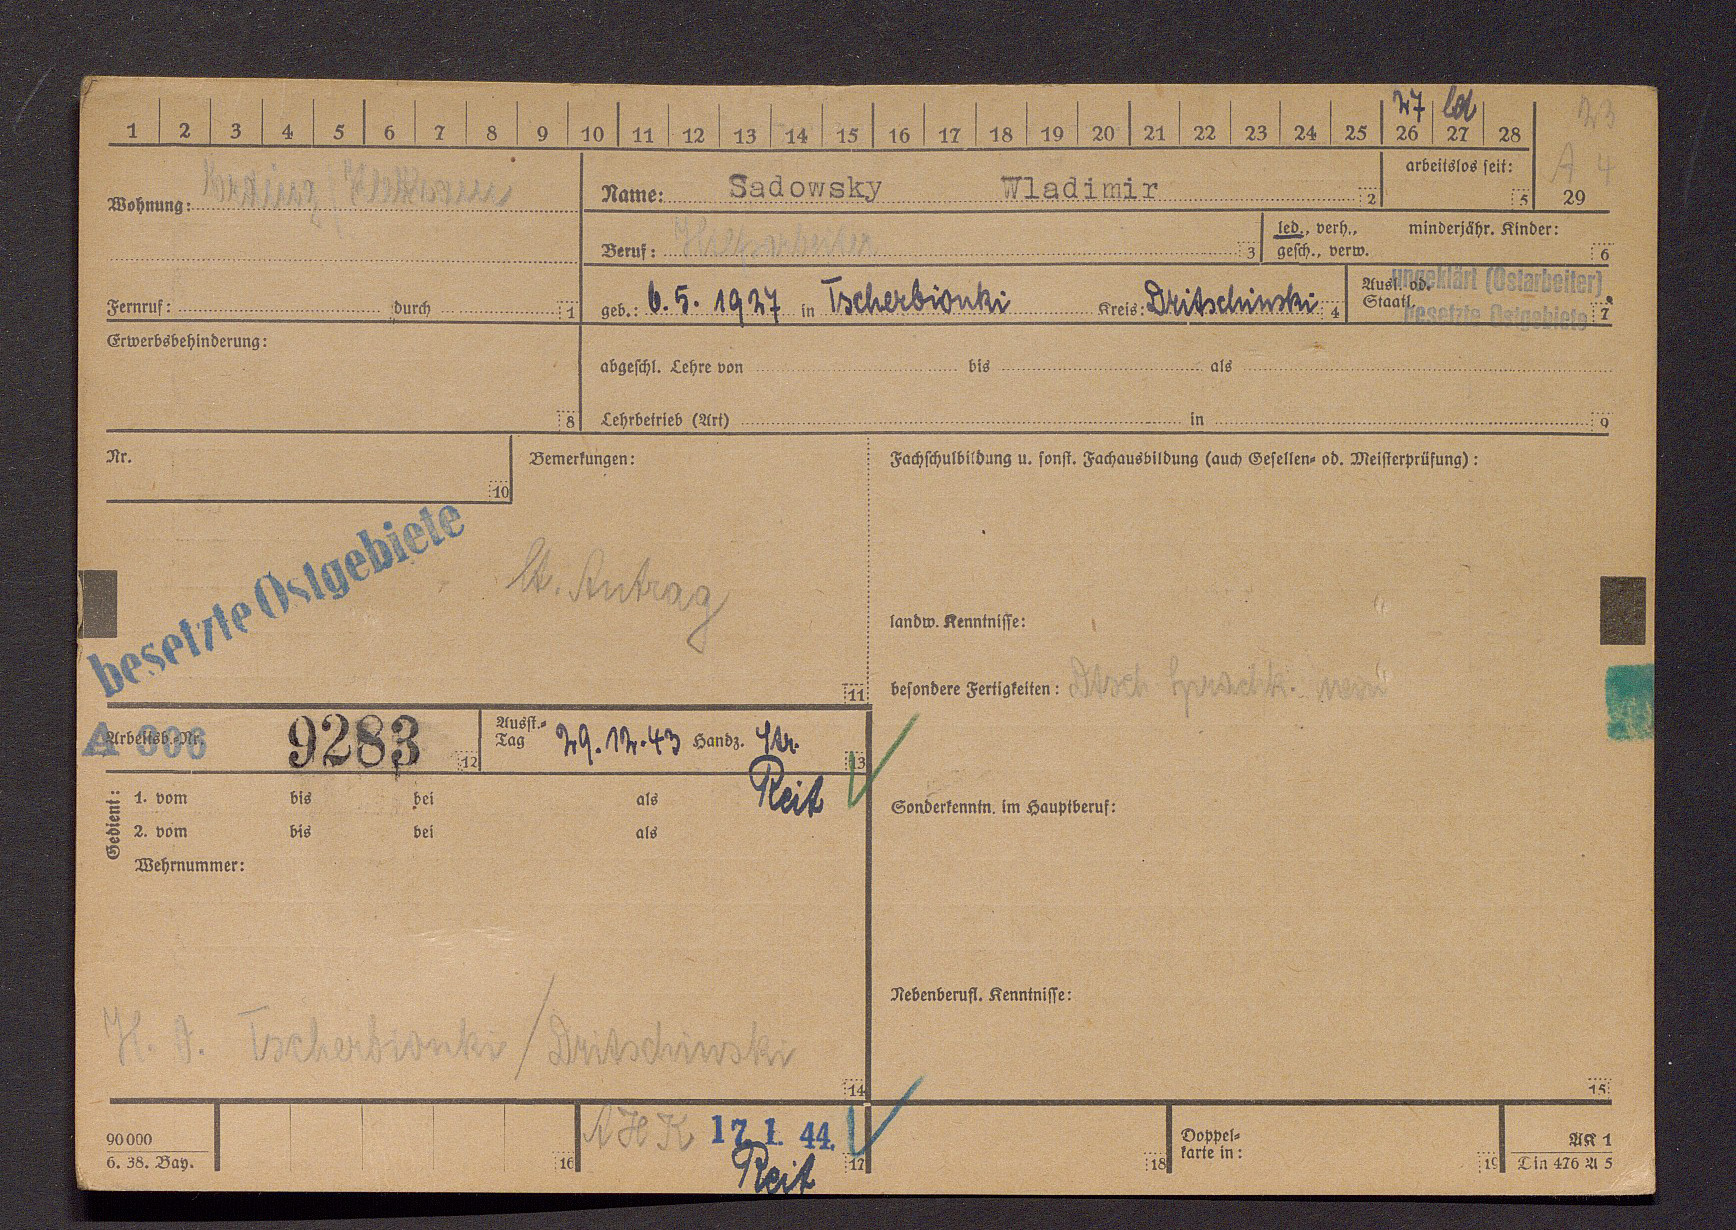 27 led
1 2 3 4 5 6 7 8 9 10 11 12 13 14 15 16 17 18 19 20 21 22 23 24 25 26 27 28
23
A 4
29
Wohnung:
Name: Sadowsky Wladimir 2
arbeitslos seit: 5
Beruf: Hilfsarbeiter 3
led., verh., gesch., verw.
minderjähr. Kinder: 6
Fernruf: durch 1
geb.: 6.5.1927 in Tscherbionki Kreis: Dritschinski 4
Ausl. od. Staatl. 7
ungeklärt (Ostarbeiter)
besetzte Ostgebiete
Erwerbsbehinderung: 8
abgeschl. Lehre von bis als
Lehrbetrieb (Art) in 9
Nr. 10
Bemerkungen:
Fachschulbildung u. sonst. Fachausbildung (auch Gesellen- od. Meisterprüfung):
besetzte Ostgebiete
St. Antrag
11
landw. Kenntnisse:
besondere Fertigkeiten: Dtsch Sprachk. nein
Arbeitsb.-Nr. A 306 9283 12
Ausst.-Tag 29.12.43 Handz. Str. 13
Reit
Gedient:
1. vom bis bei als
2. vom bis bei als
Wehrnummer:
Sonderkenntn. im Hauptberuf:
Nebenberufl. Kenntnisse:
H. O. Tscherbionki / Dritschinski
14
15
90000
6. 38. Bay.
16
AHK 17. 1. 44. 17
Reit
18
Doppelkarte in: 19
AK 1
Din 476 A 5